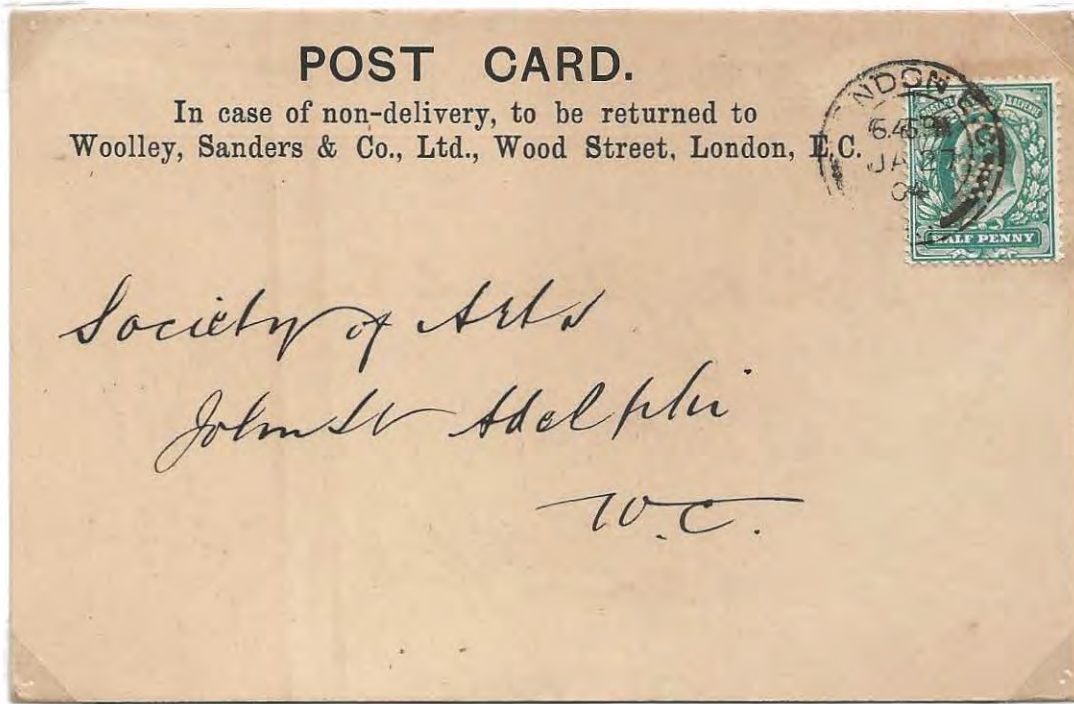 POST CARD.
In case of non-delivery, to be returned to
Woolley, Sanders & Co., Ltd., Wood Street, London, E.C.
NDON E.C
JA 27
04
POSTAGE
HALF PENNY
Society of Arts
John St Adelphi
W.C.